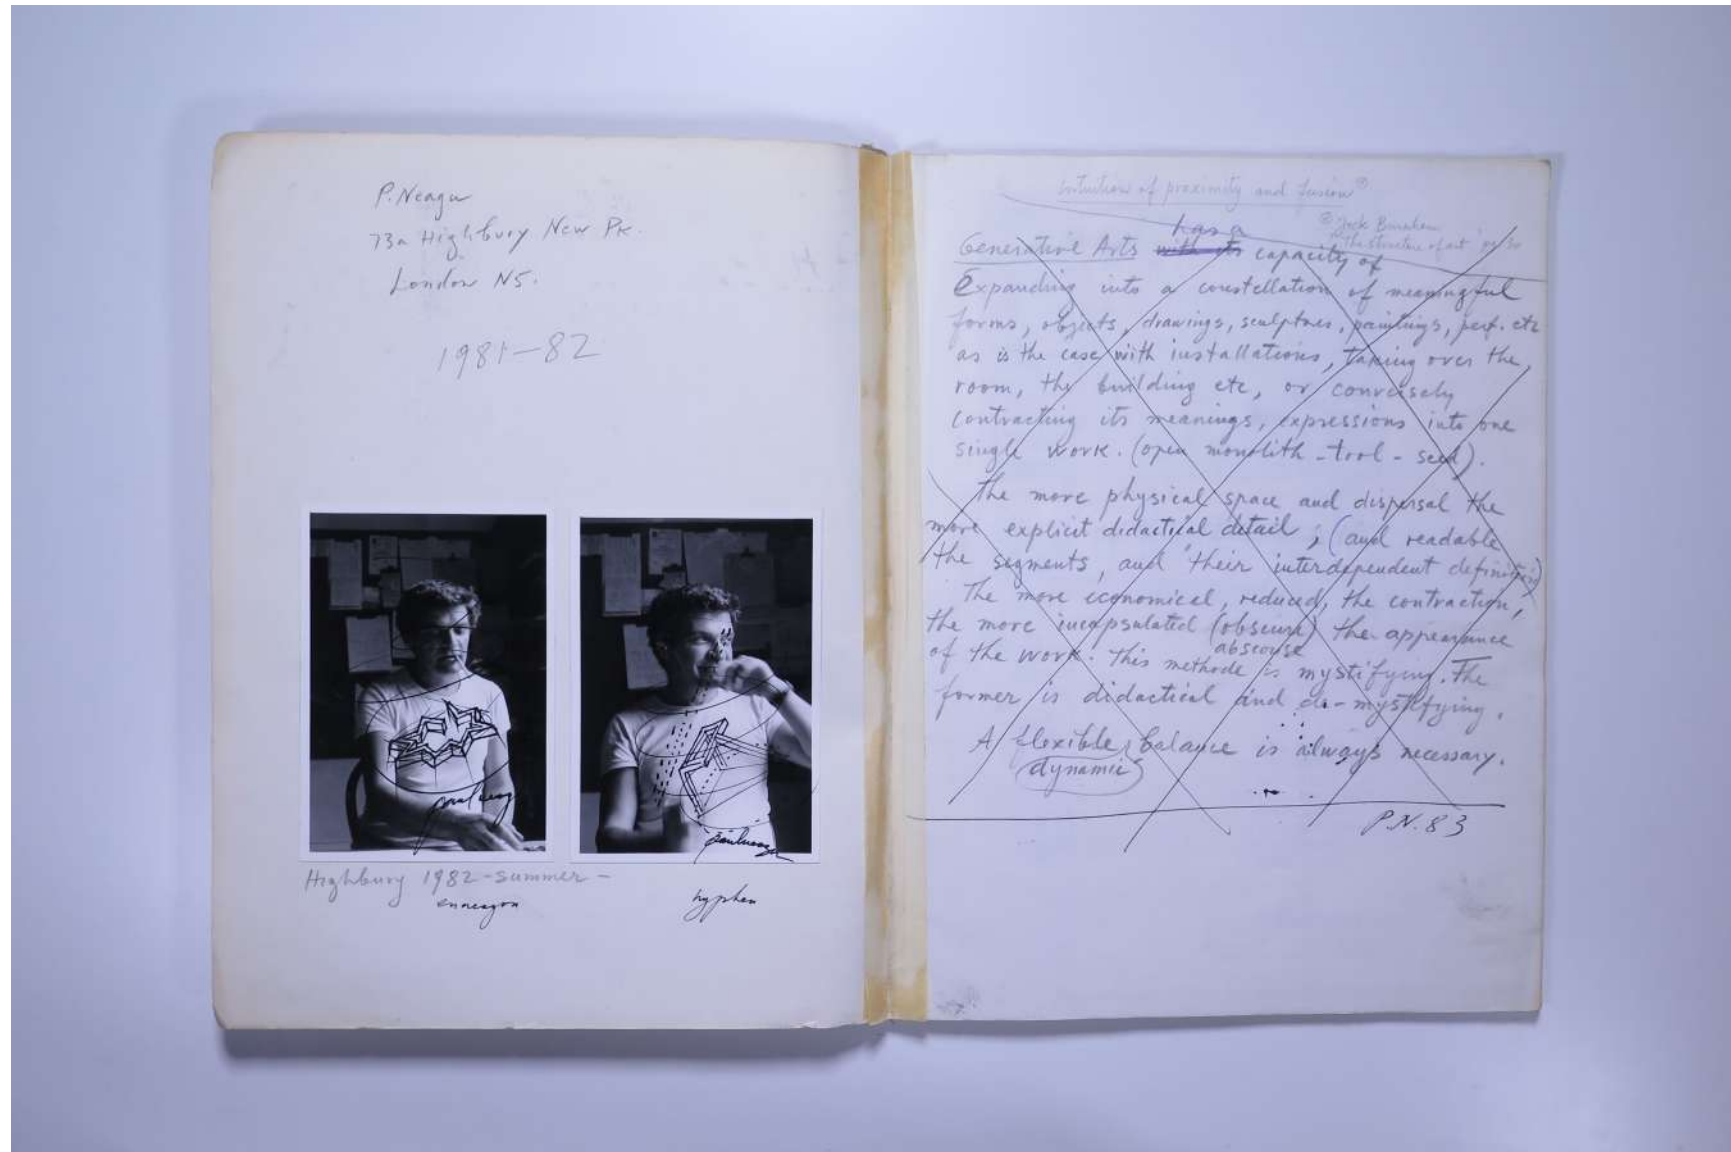 P. Neagu
73a Highbury New Pk.
London N5.
1981-82
paulneagu
paulneagu
Highbury 1982-summer-
enneagon
hyphen
intuition of proximity and fusion
Jack Burnham
"The structure of art" pg 30
has a
Generative Arts with its capacity of
Expanding into a constellation of meaningful
forms, objects, drawings, sculptures, paintings, perf. etc
as is the case with installations, taking over the,
room, the building etc, or conversely
contracting its meanings, expressions into one
single work. (open monolith - tool - seed).
The more physical space and dispersal the
more explicit didactical detail; (and readable
the segments, and their interdependent definition)
The more economical, reduced, the contraction,
the more incapsulated (obscure) the appearance
abscouse
of the work. This methode is mystifying. The
former is didactical and de-mystifying.
A flexible, balance is always necessary.
(dynamic)
P.N. 83